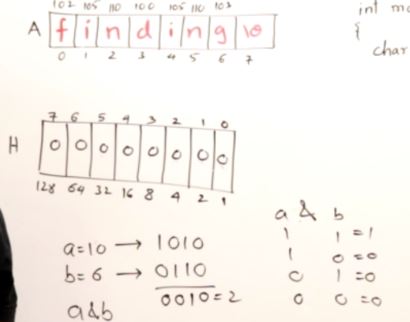 102 105 110 100 105 110 103
A f i n d i n g \0
0 1 2 3 4 5 6 7
int
{
char
7 6 5 4 3 2 1 0
H 0 0 0 0 0 0 0 0
128 64 32 16 8 4 2 1
a=10 → 1010
b=6 → 0110
0010=2
a&b
a & b
1 1 =1
1 0 =0
0 1 =0
0 0 =0